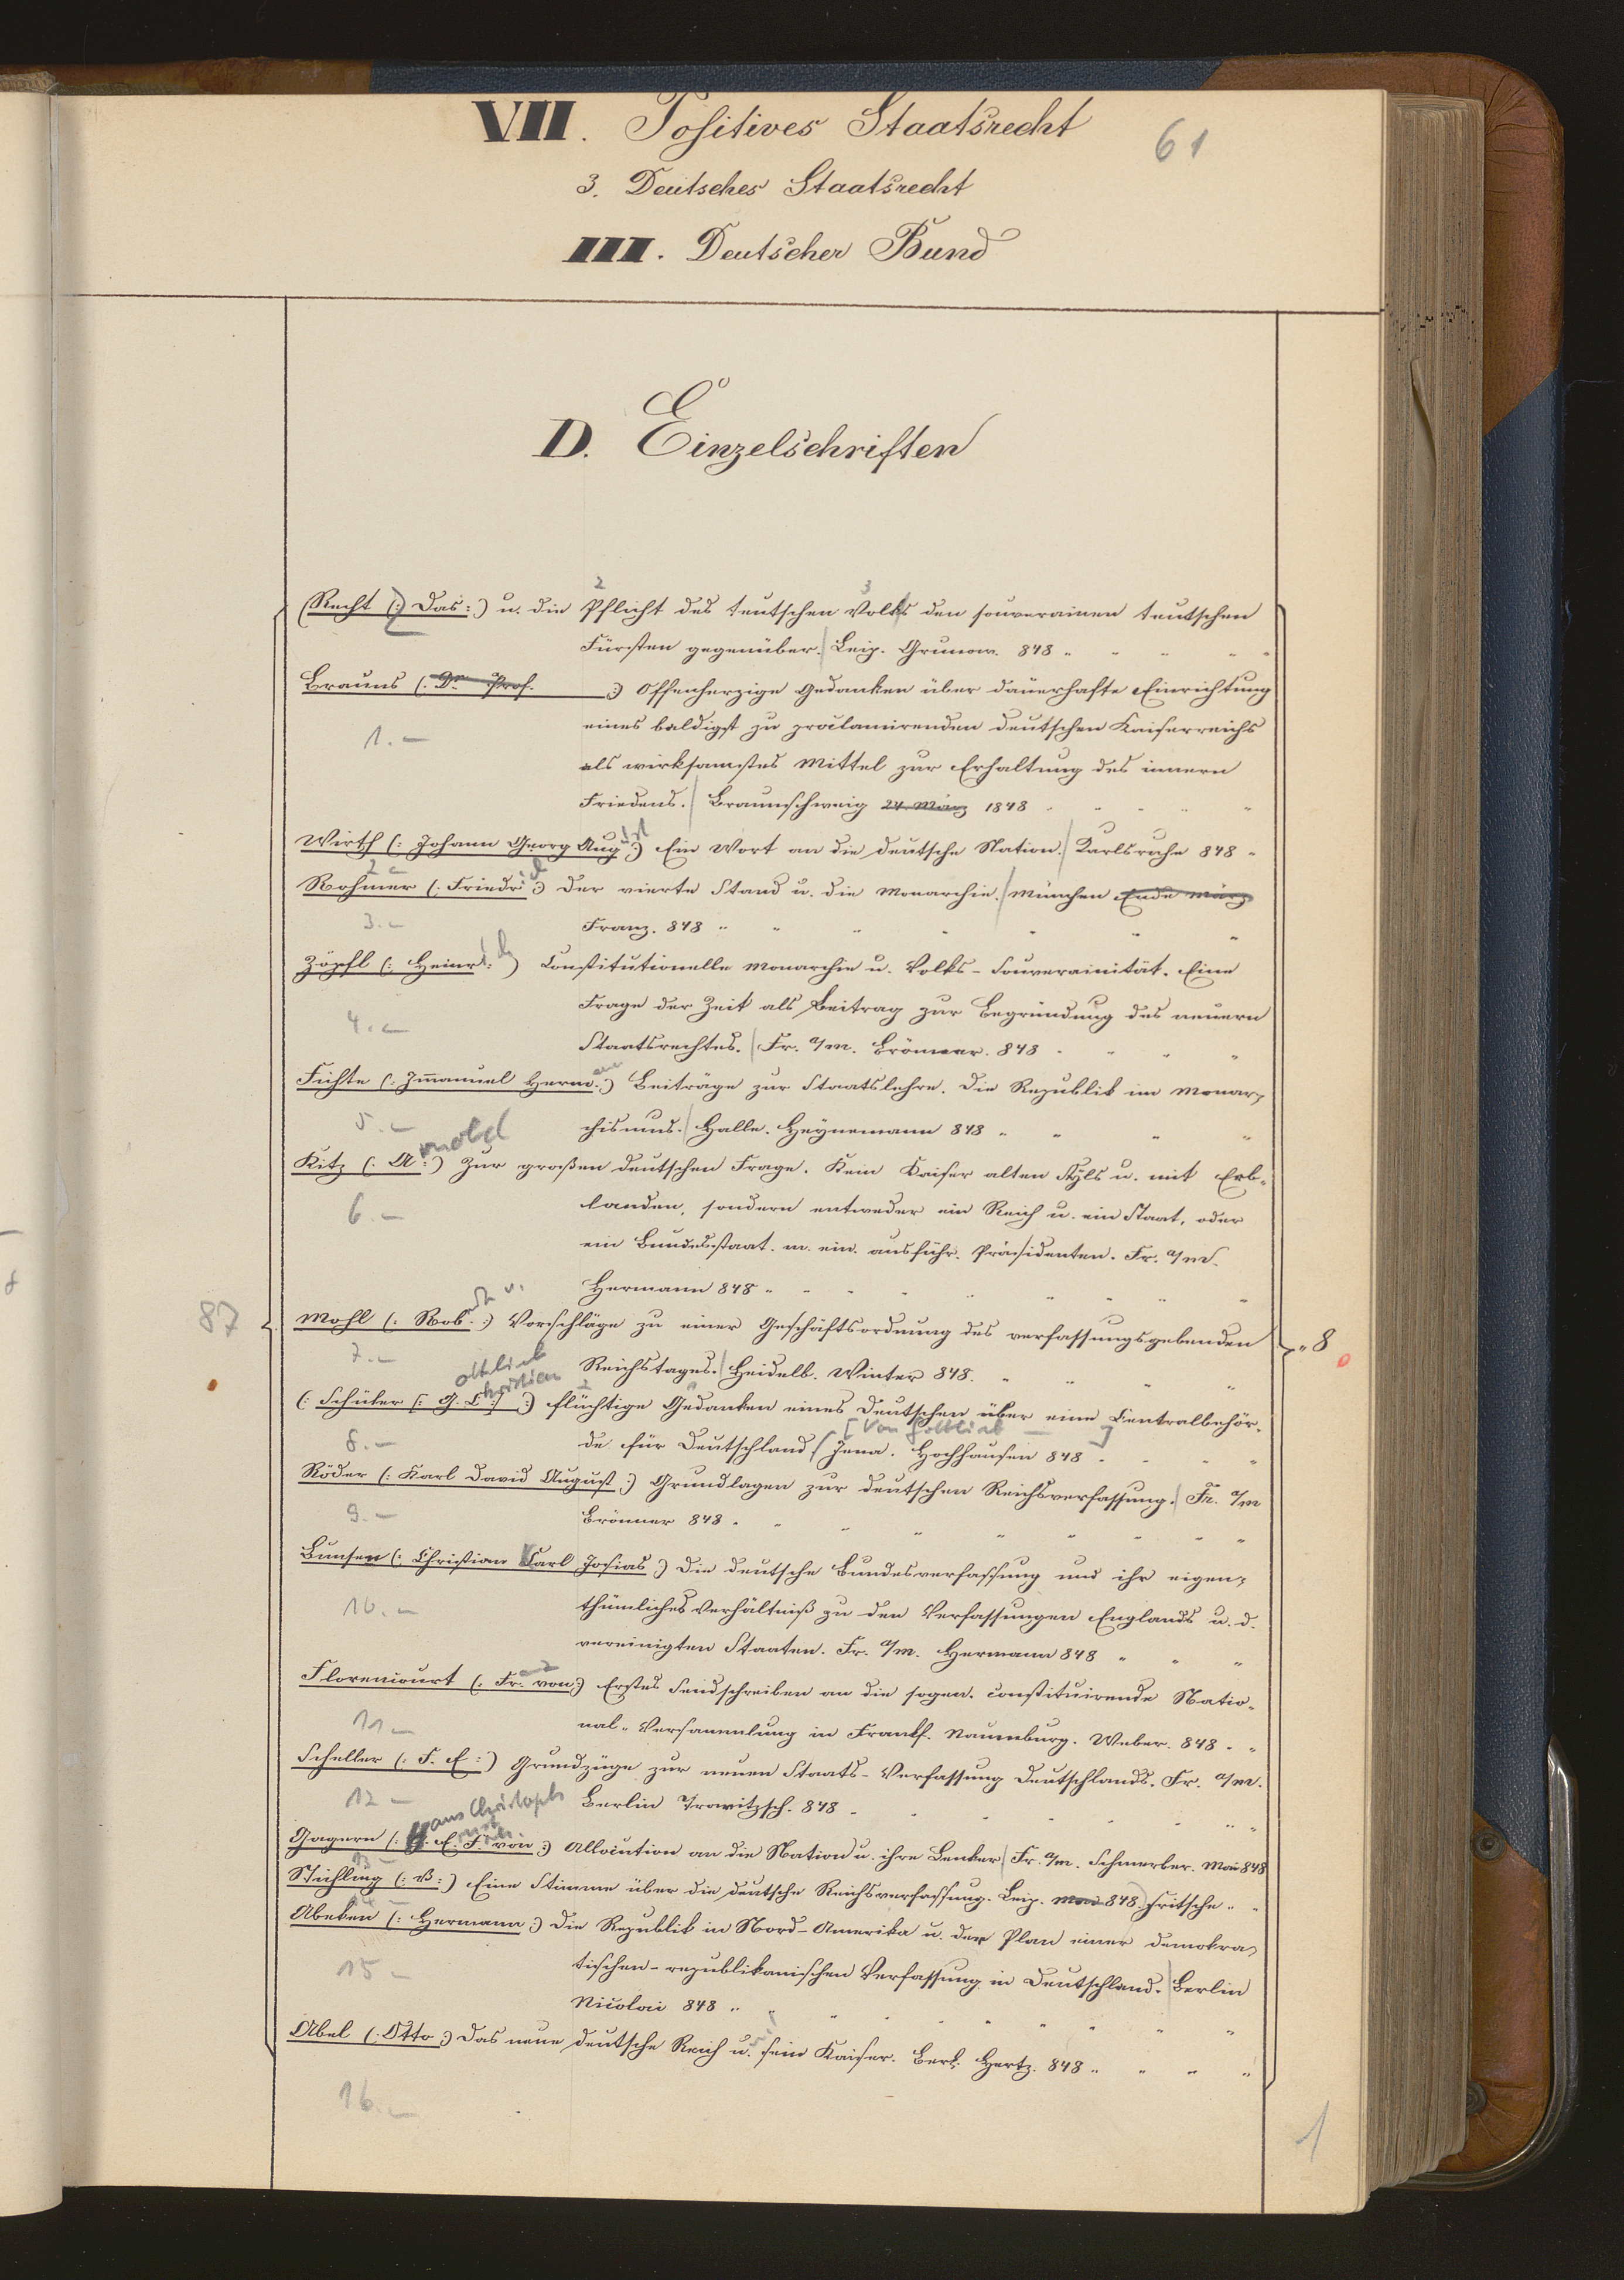 VII. Positives Staatsrecht
61
3. Deutsches Staatsrecht
III. Deutscher Bund
D. Einzelschriften
2 3
(Recht (: Das :) u. die Pflicht des teutschen Volks den souverainen teutschen
Fürsten gegenüber. Leip. Grunow. 848 " " " " "
Brauns (: Dr. Prof. :) Offenherzige Gedanken über dauerhafte Einrichtung
eines baldigst zu proclamirenden deutschen Kaiserreichs
1. –
als wirksamstes Mittel zur Erhaltung des innern
Friedens. Braunschweig 24. März 1848 " " " " "
Wirth (: Johann Georg August :) Ein Wort an die deutsche Nation. Karlsruhe 848 "
2 –
Rohmer (: Friedrich :) Der vierte Stand u. die Monarchie. München Ende März
3. –
Franz. 848 " " " " " " "
Zöpfl (: Heinrich :) Constitutionelle Monarchie u. Volks-Souverainität. Eine
Frage der Zeit als Beitrag zur Begründung des neuern
4. –
Staatsrechtes. Fr. a/m. Brönner. 848 " " " "
Fichte (: Immanuel Herm. :) Beiträge zur Staatslehre. Die Republik im Monar-
5. –
chismus. Halle. Heynemann 848 " " " "
Kitz (: Arnold :) Zur großen deutschen Frage. Kein Kaiser alten Styls u. mit Erb-
landen, sondern entweder ein Reich u. ein Staat, oder
6. –
ein Bundesstaat. m. ein. ausführ. Präsidenten. Fr. a/m.
Hermann 848 " " " " " " " "
87
Mohl (: Rob. v. :) Vorschläge zu einer Geschäftsordnung des verfassungsgebenden
" 8
7. –
Reichstages. Heidelb. Winter 848. " " " "
ottlieb
hristian
(: Schüler (: G. C. :) :) flüchtige Gedanken eines Deutschen über eine Centralbehör-
[Von Gottlieb – ]
8. –
de für Deutschland Jena. Hochhausen 848 " " " "
Röder (: Karl David August :) Grundlagen zur deutschen Reichsverfassung. Fr. a/m
9. –
Brönner 848 " " " " " " " "
Bunsen (: Christian Carl Josias :) Die deutsche Bundesverfassung und ihr eigen-
10. –
thümliches Verhältniß zu den Verfassungen Englands u. d.
vereinigten Staaten. Fr. a/m. Hermann 848 " " "
Florencourt (: Fr. von :) Erstes Sendschreiben an die sogen. constituirende Natio-
11 –
nal-Versammlung in Frankf. Naumburg. Weber. 848 " "
Scheller (: F. E :) Grundzüge zur neuen Staats-Verfassung Deutschlands. Fr. a/m.
12 –
Berlin Trowitzsch. 848 " " " " " "
ans Christoph
Gagern (: H. C. F. von :) Allocution an die Nation u. ihre Lenker Fr. a/m. Schmerber. Mai 848
13 –
Stichling (: B :) Eine Stimme über die deutsche Reichsverfassung. Leip. Mai 848 Fritsche " "
14 –
Abeken (: Hermann :) Die Republik in Nord-Amerika u. der Plan einer demokra-
15 –
tischen-republikanischen Verfassung in Deutschland. Berlin
Nicolai 848 " " " " " " " "
Abel (: Otto :) Das neue deutsche Reich u. sein Kaiser. Berl. Hertz. 848 " " " "
16. –
1